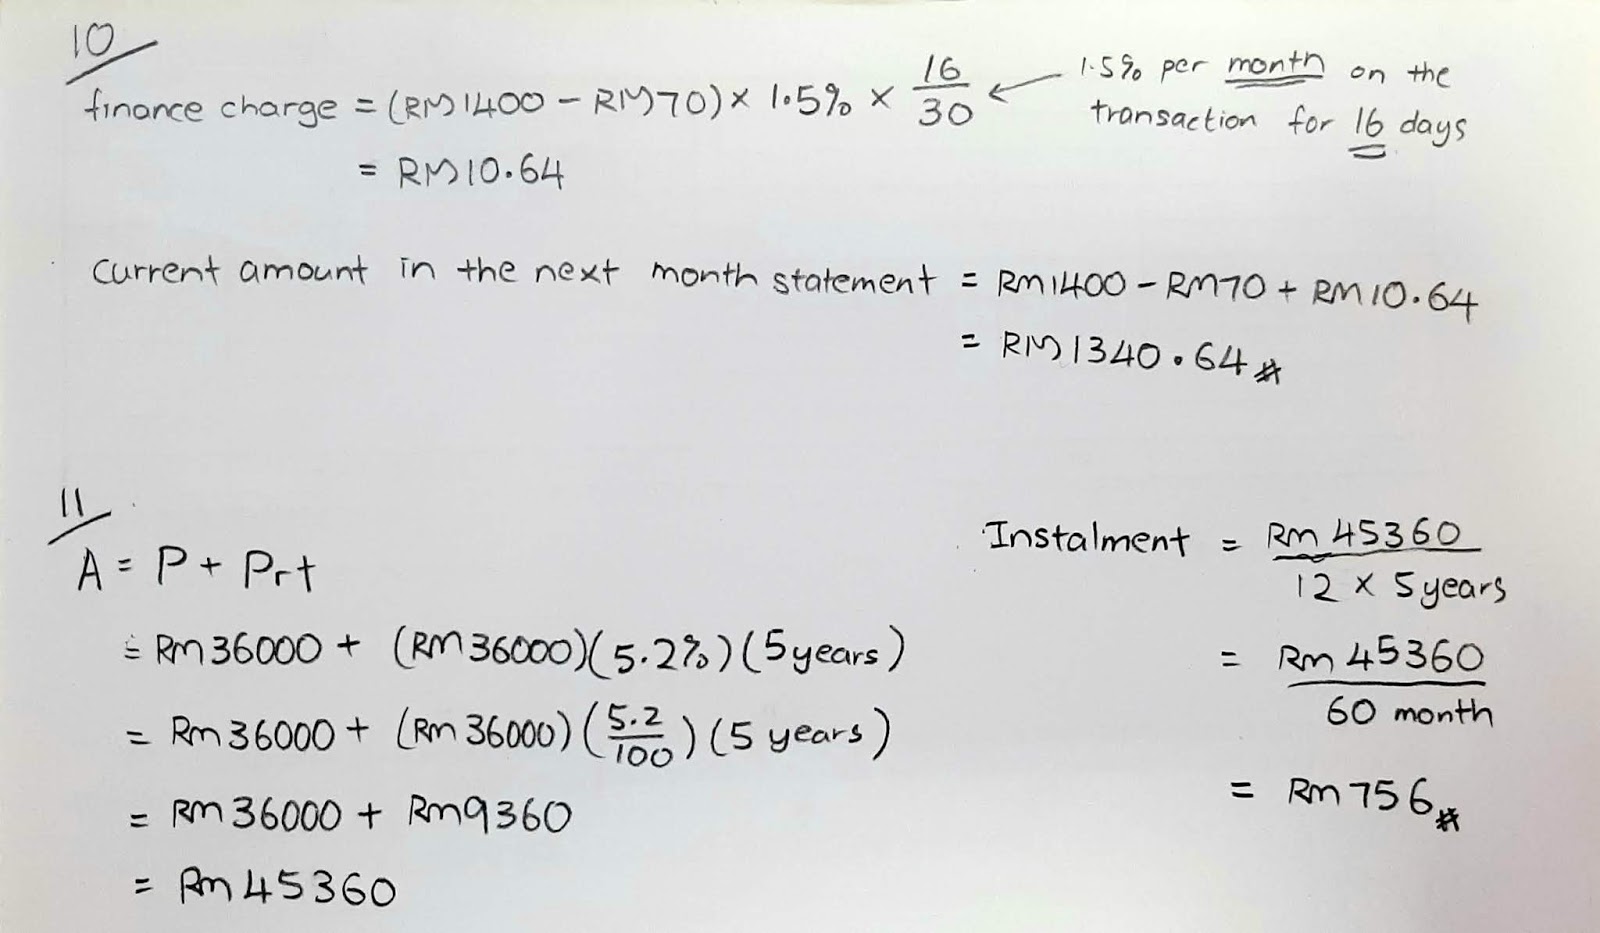 10
finance charge = (RM1400 - RM70) × 1.5% × 16/30 ← 1.5% per month on the transaction for 16 days
= RM10.64
Current amount in the next month statement = RM1400 - RM70 + RM10.64
= RM1340.64 #
11
A = P + Prt
= RM36000 + (RM36000)(5.2%)(5 years)
= RM36000 + (RM36000)(5.2/100)(5 years)
= RM36000 + RM9360
= RM45360
Instalment = RM 45360 / 12 × 5 years
= RM 45360 / 60 month
= RM 756 #